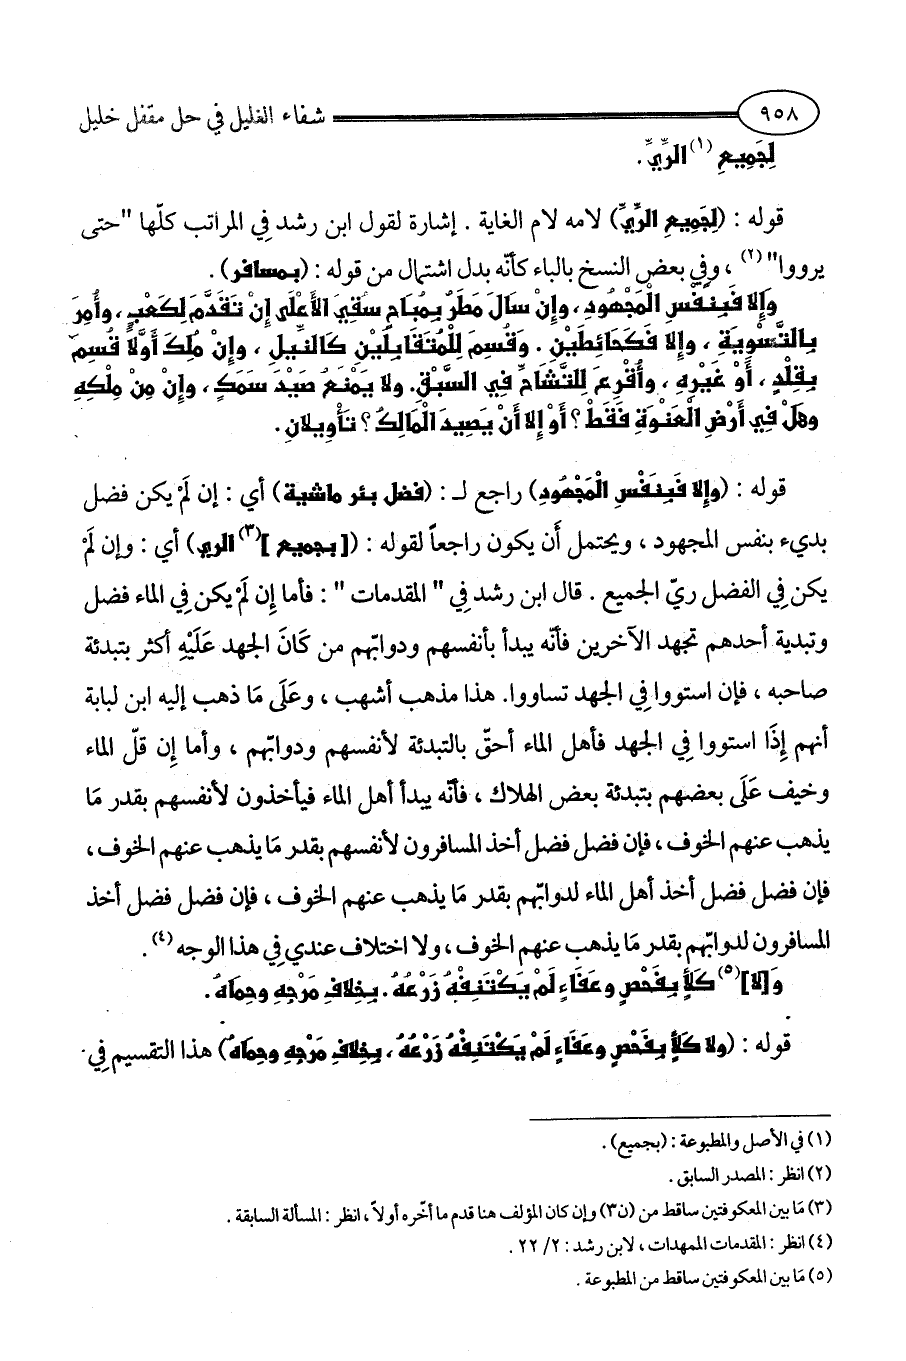 ٩٥٨ شفاء الغليل في حل مقفل خليل
لِجَمِيعِ (١) الرِّيِّ.
قوله : (لِجَمِيعِ الرِّيِّ) لامه لام الغاية . إشارة لقول ابن رشد في المراتب كلّها "حتى
يرووا" (٢) ، وفي بعض النسخ بالباء كأنّه بدل اشتمال من قوله : (بمسافر) .
وَإِلا فَبِنَفْسِ الْمَجْهُودِ ، وإِنْ سَالَ مَطَرٌ بِمُبَاحٍ سُقِيَ الأَعْلَى إِنْ تَقَدَّمَ لِكَعْبٍ ، وأُمِرَ
بِالتَّسْوِيَةِ ، وإِلا فَكَحَائِطَيْنِ . وَقُسِمَ لِلْمُتَقَابِلَيْنِ كَالنِّيلِ ، وإِنْ مُلِكَ أَوَّلاً قُسِمَ
بِقِلْدٍ ، أَوْ غَيْرِهِ ، وأُقْرِعَ لِلتَّشَاحِّ فِي السَّبْقِ. ولا يَمْنَعُ صَيْدَ سَمَكٍ ، وإِنْ مِنْ مِلْكِهِ
وهَلْ فِي أَرْضِ الْعَنْوَةِ فَقَطْ ؟ أَوْ إِلا أَنْ يَصِيدَ الْمَالِكُ ؟ تَأْوِيلان .
قوله : (وإِلا فَبِنَفْسِ الْمَجْهُودِ) راجع لـ : (فضل بئر ماشية) أي : إن لَمْ يكن فضل
بديء بنفس المجهود ، ويحتمل أَن يكون راجعاً لقوله : ([بجميع ](٣) الري) أي : وإن لَمْ
يكن في الفضل ريّ الجميع . قال ابن رشد في " المقدمات " : فأما إن لَمْ يكن في الماء فضل
وتبدية أحدهم تجهد الآخرين فأنّه يبدأ بأنفسهم ودوابّهم من كَانَ الجهد عَلَيْهِ أكثر بتبدئة
صاحبه ، فإن استووا في الجهد تساووا. هذا مذهب أشهب ، وعَلَى مَا ذهب إليه ابن لبابة
أنهم إِذَا استووا في الجهد فأهل الماء أحقّ بالتبدئة لأنفسهم ودوابّهم ، وأما إن قلّ الماء
وخيف عَلَى بعضهم بتبدئة بعض الهلاك ، فأنّه يبدأ أهل الماء فيأخذون لأنفسهم بقدر مَا
يذهب عنهم الخوف ، فإن فضل فضل أخذ المسافرون لأنفسهم بقدر مَا يذهب عنهم الخوف ،
فإن فضل فضل أخذ أهل الماء لدوابّهم بقدر مَا يذهب عنهم الخوف ، فإن فضل فضل أخذ
المسافرون لدوابّهم بقدر مَا يذهب عنهم الخوف ، ولا اختلاف عندي في هذا الوجه (٤) .
وَ[لا](٥) كَلأٍ بِفَحْصٍ وعَفَاءٍ لَمْ يَكْتَنِفْهُ زَرْعُهُ . بِخِلافِ مَرْجِهِ وحِمَاهُ .
قوله : (ولا كَلأٍ بِفَحْصٍ وعَفَاءٍ لَمْ يَكْتَنِفْهُ زَرْعُهُ ، بِخِلافِ مَرْجِهِ وحِمَاهُ) هذا التقسيم فِي
(١) في الأصل والمطبوعة : (بجميع) .
(٢) انظر : المصدر السابق .
(٣) مَا بين المعكوفتين ساقط من (ن٣) وإن كان المؤلف هنا قدم ما أخّره أولاً ، انظر : المسألة السابقة .
(٤) انظر : المقدمات الممهدات ، لابن رشد : ٢/ ٢٢ .
(٥) مَا بين المعكوفتين ساقط من المطبوعة .